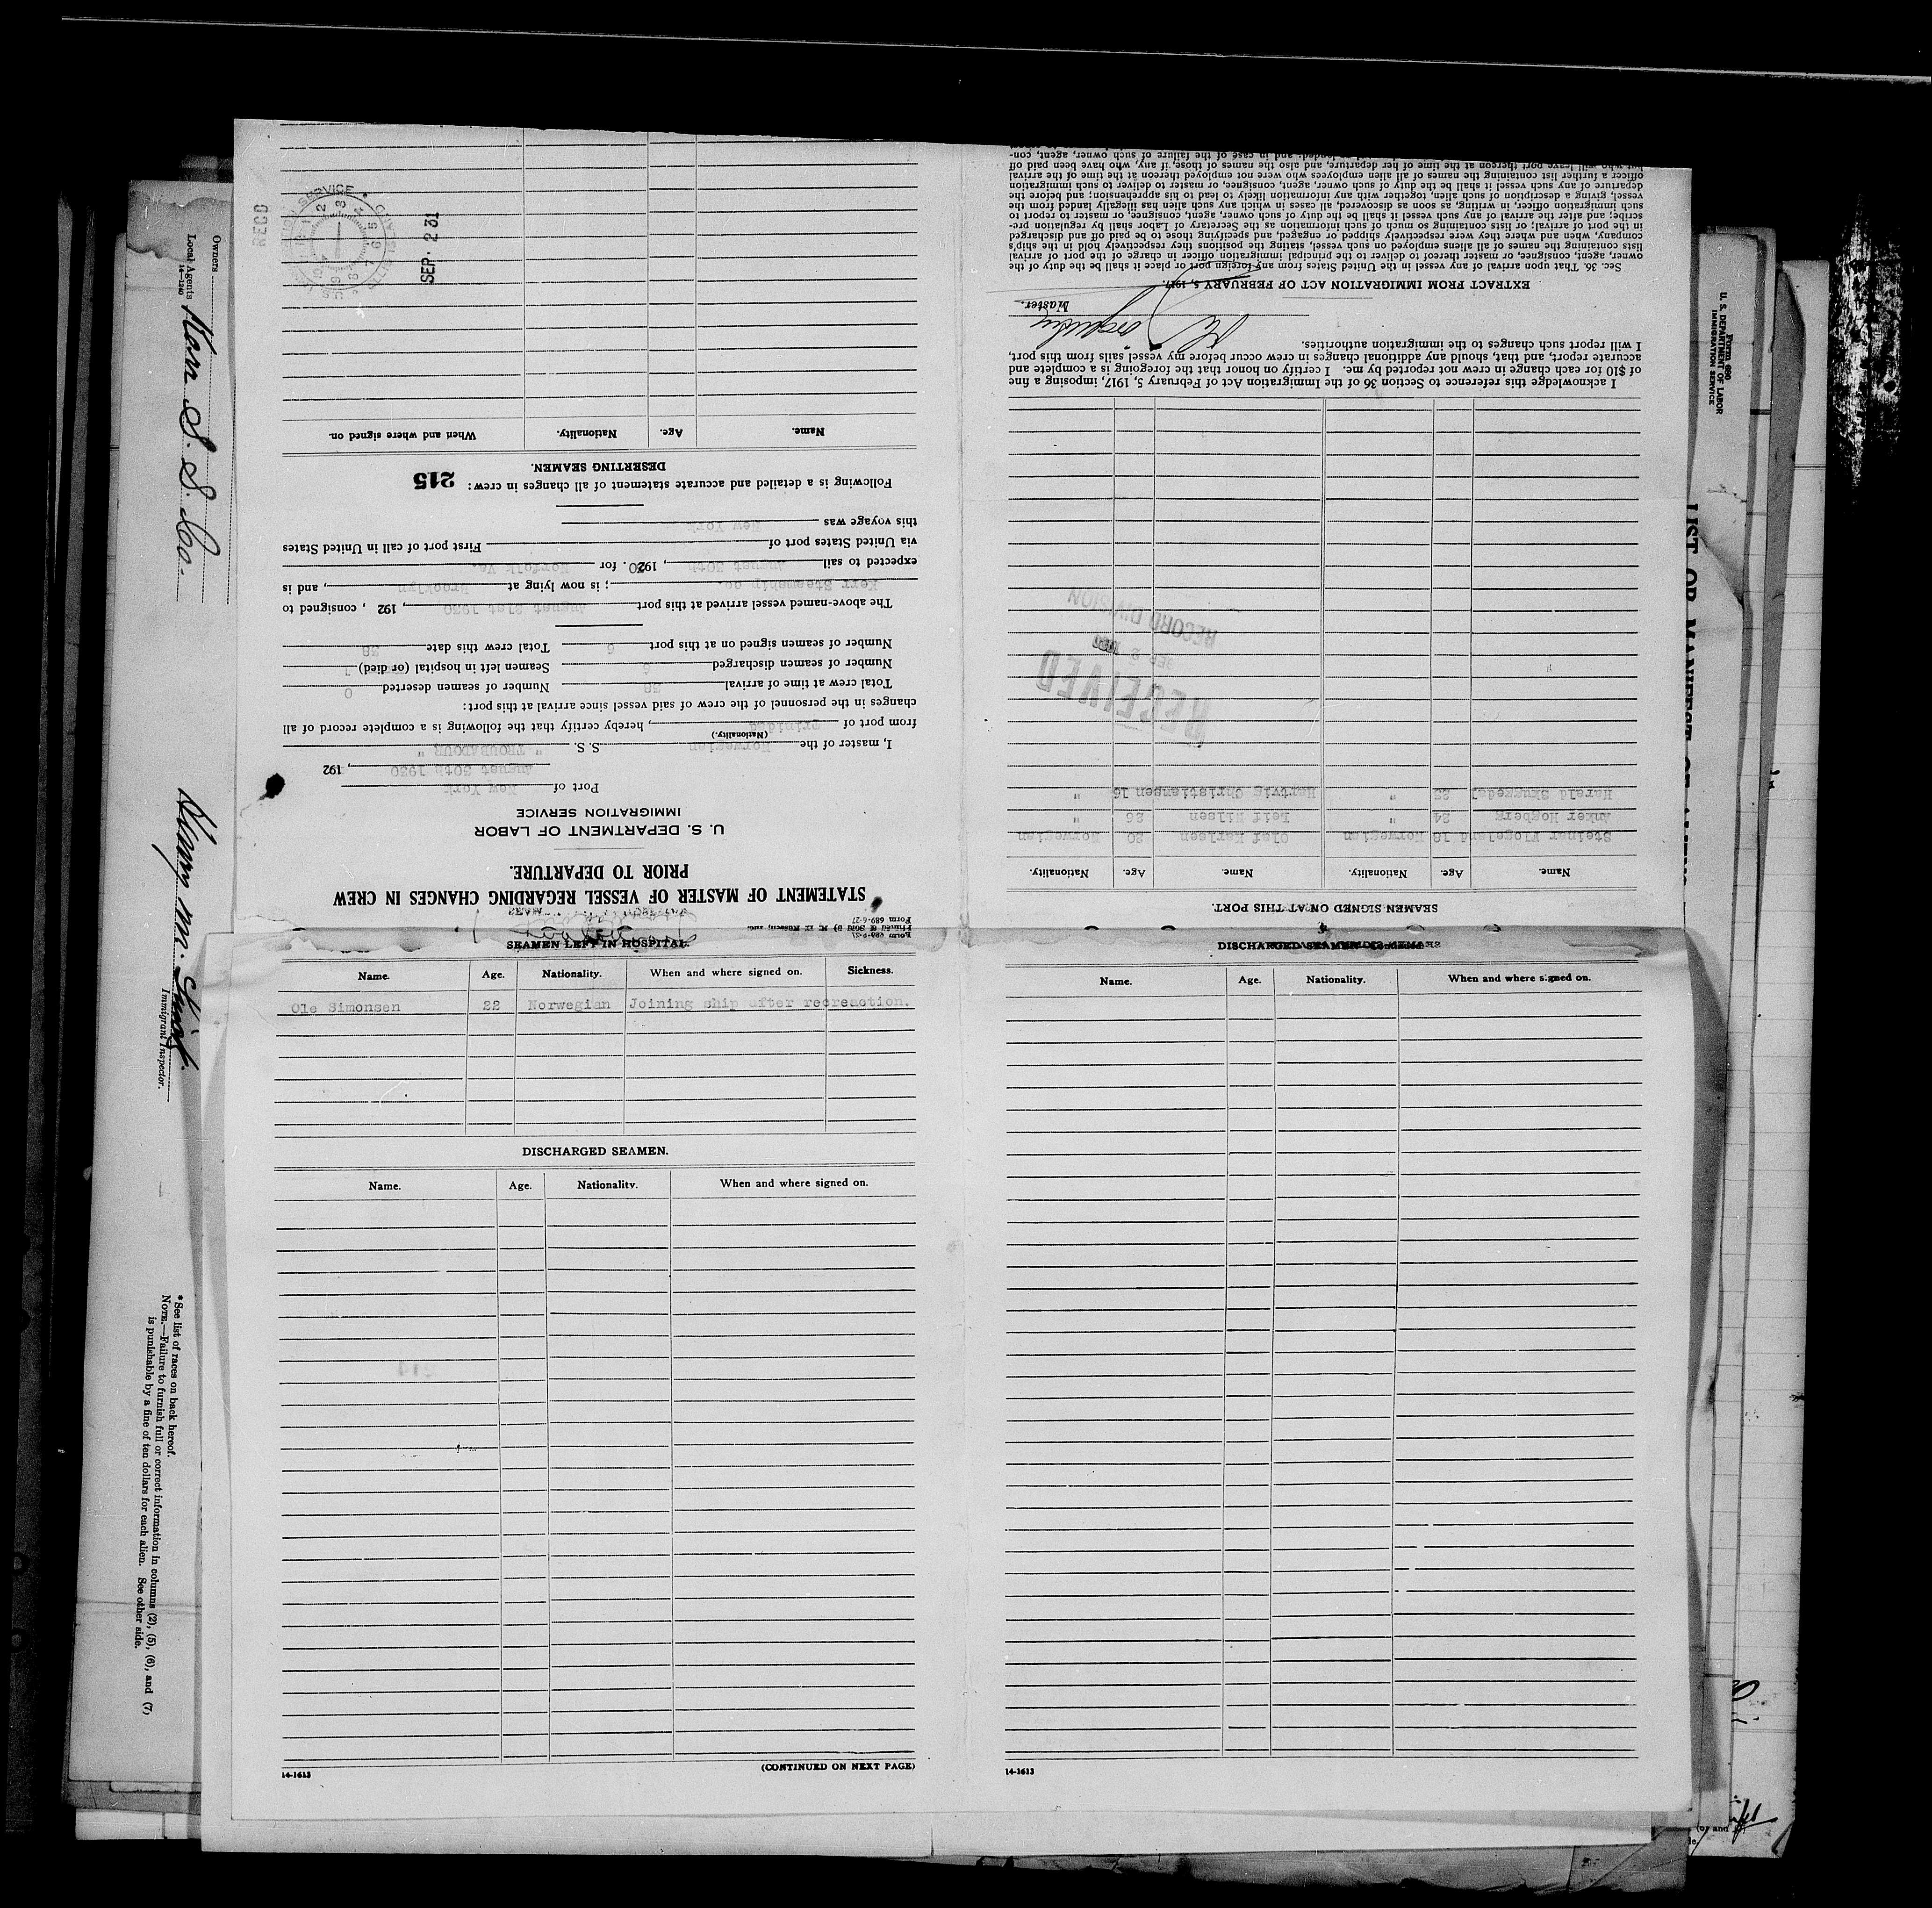 Form 689-6-27
STATEMENT OF MASTER OF VESSEL REGARDING CHANGES IN CREW
PRIOR TO DEPARTURE.
U. S. DEPARTMENT OF LABOR
IMMIGRATION SERVICE
Port of New York
August 30th 1930, 192
I, master of the Norwegian S. S. " TROUBADOUR "
(Nationality.)
from port of Trinidad, hereby certify that the following is a complete record of all
changes in the personnel of the crew of said vessel since arrival at this port:
Total crew at time of arrival 38 Number of seamen deserted 0
Number of seamen discharged Seamen left in hospital (or died) 1
Number of seamen signed on at this port 6 Total crew this date 38
The above-named vessel arrived at this port August 21st 1930, 192 , consigned to
Kerr Steamship co.; is now lying at Brooklyn, and is
expected to sail August 30th, 1920. for Norfolk Va.
via United States port of First port of call in United States
this voyage was New York
Following is a detailed and accurate statement of all changes in crew: 215
DESERTING SEAMEN.
Name. Age. Nationality. When and where signed on.
REC'D
SEP. 2 31
SEAMEN SIGNED ON AT THIS PORT.
Name. Age. Nationality. Name. Age. Nationality.
Steinar Flogeland 18 Norwegian Olaf Karlsen 20 Norwegian
Anker Hogberg 24 " Leif Nilsen 26 "
Harald Skuggedal 22 " Hartvig Christiansen 16 "
RECEIVED
SEP 2 1930
RECORD DIVISION
I acknowledge this reference to Section 36 of the Immigration Act of February 5, 1917, imposing a fine
of $10 for each change in crew not reported by me. I certify on honor that the foregoing is a complete and
accurate report, and that, should any additional changes in crew occur before my vessel sails from this port,
I will report such changes to the immigration authorities.
Master.
EXTRACT FROM IMMIGRATION ACT OF FEBRUARY 5, 1917.
Sec. 36. That upon arrival of any vessel in the United States from any foreign port or place it shall be the duty of the
owner, agent, consignee, or master thereof to deliver to the principal immigration officer in charge of the port of arrival
lists containing the names of all aliens employed on such vessel, stating the positions they respectively hold in the ship's
company, when and where they were respectively shipped or engaged, and specifying those to be paid off and discharged
in the port of arrival; or lists containing so much of such information as the Secretary of Labor shall by regulation pre-
scribe; and after the arrival of any such vessel it shall be the duty of such owner, agent, consignee, or master to report to
such immigration officer, in writing, as soon as discovered, all cases in which any such alien has illegally landed from the
vessel, giving a description of such alien, together with any information likely to lead to his apprehension; and before the
departure of any such vessel it shall be the duty of such owner, agent, consignee, or master to deliver to such immigration
officer a further list containing the names of all alien employees who were not employed thereon at the time of the arrival
but who will leave port thereon at the time of her departure, and also the names of those, if any, who have been paid off
landed; and in case of the failure of such owner, agent, con-
SEAMEN LEFT IN HOSPITAL.
Name. Age. Nationality. When and where signed on. Sickness.
Ole Simonsen 22 Norwegian Joining ship after recreaction.
DISCHARGED SEAMEN.
Name. Age. Nationality. When and where signed on.
14-1613 (CONTINUED ON NEXT PAGE)
DISCHARGED SEAMEN
Name. Age. Nationality. When and where signed on.
14-1613
Owners
Local Agents Kerr S. S. Co.
14-1240
Immigrant Inspector.
*See list of races on back hereof.
NOTE.—Failure to furnish full or correct information in columns (2), (5), (6), and (7)
is punishable by a fine of ten dollars for each alien. See other side.
Form 680
U. S. DEPARTMENT OF LABOR
IMMIGRATION SERVICE
LIST OR MANIFEST OF ALIENS